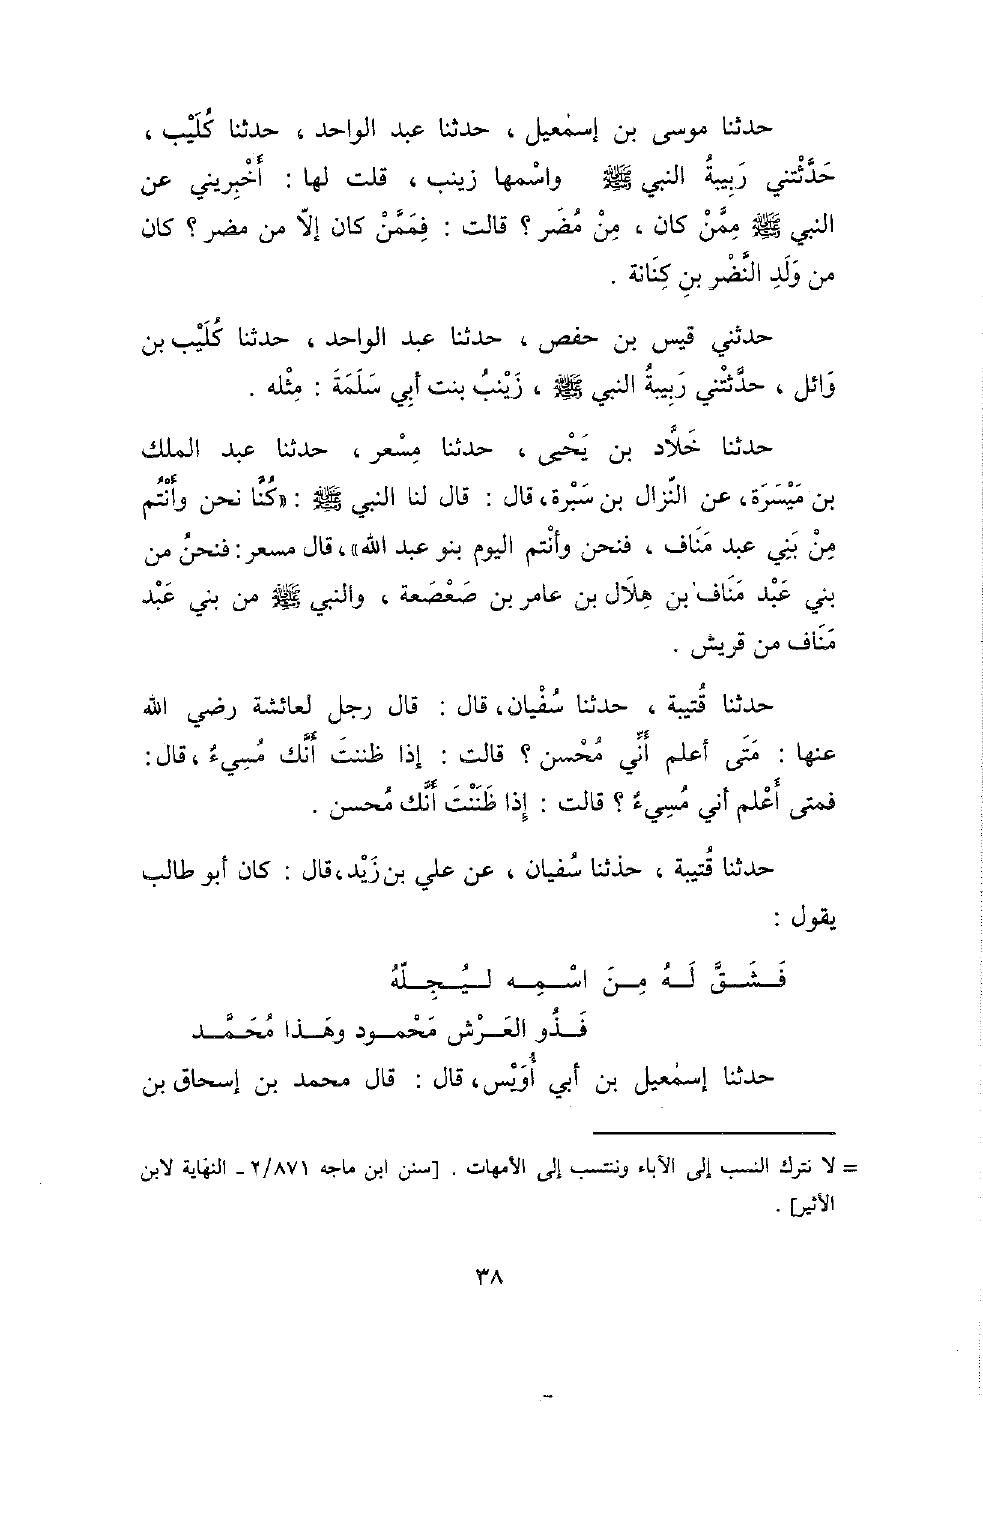 حدثنا موسى بن إسمٰعيل ، حدثنا عبد الواحد ، حدثنا كُلَيْب ،
حَدَّثْتني رَبِيبةُ النبي ﷺ واسْمها زينب ، قلت لها : أَخْبِريني عن
النبي ﷺ مِمَّنْ كان ، مِنْ مُضَر ؟ قالت : فِمَمَّنْ كان إلاّ من مضر ؟ كان
من وَلَدِ النَّضْر بنِ كِنَانة .
حدثني قيس بن حفص ، حدثنا عبد الواحد ، حدثنا كُلَيْب بن
وَائل ، حدَّثْتْني رَبِيبةُ النبي ﷺ ، زَيْنبُ بنت أبي سَلَمَةَ : مِثْله .
حدثنا خَلاَّد بن يَحْيى ، حدثنا مِسْعر ، حدثنا عبد الملك
بن مَيْسَرَة، عن النّزال بن سَبْرة، قال : قال لنا النبي ﷺ : «كُنَّا نحن وأَنْتُم
مِنْ بَنِي عبد مَنَاف ، فنحن وأنْتم اليوم بنو عبد الله»، قال مسعر: فنحنُ من
بني عَبْد مَنَاف بن هِلَال بن عامر بن صَعْصَعة ، والنبي ﷺ من بني عَبْد
مَنَاف من قريش .
حدثنا قُتيبة ، حدثنا سُفْيان، قال : قال رجل لعائشة رضي الله
عنها : مَتَى أعلم أَنِّي مُحْسن ؟ قالت : إذا ظننتَ أنَّك مُسِيءُ ، قال:
فمتى أَعْلم أني مُسِيءُ ؟ قالت : إِذا ظَنَنْتَ أنَّك مُحسن .
حدثنا قُتيبة ، حذثنا سُفيان ، عن علي بن زَيْد، قال : كان أبو طالب
يقول :
فَـشَـقَّ لَـهُ مِـنَ اسْـمِـه لـيُـجِـلّهُ
فَـذُو العَـرْش مَحْمـود وهَـذا مُحَـمَّـد
حدثنا إسمٰعيل بن أبي أُوَيْس، قال : قال محمد بن إسحاق بن
= لا نترك النسب إلى الآباء وننتسب إلى الأمهات . [سنن ابن ماجه ٢/٨٧١ ـ النهاية لابن
الأثير] .
٣٨